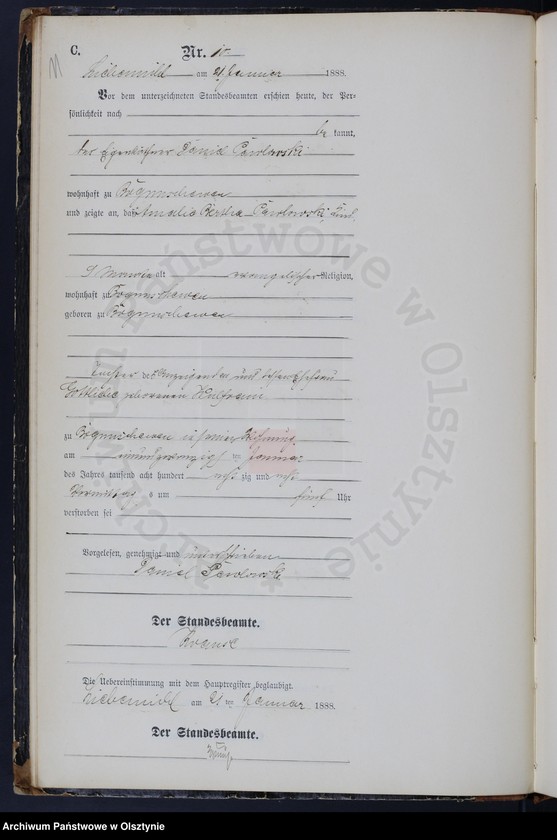 C.
Nr. 10
11
Liebemühl am 21 Januar 1888.
Vor dem unterzeichneten Standesbeamten erschien heute, der Per-
sönlichkeit nach
be kannt,
der Eigenkäthner Daniel Pawlowski
wohnhaft zu Bogunschewen
und zeigte an, daß Amalie Bertha Pawlowski, Kind,
9 Monate alt evangelischer Religion,
wohnhaft zu Bogunschewen
geboren zu Bogunschewen
Tochter des Anzeigenden und dessen Ehefrau
Gottliebe geborenen
zu Bogunschewen in seiner Wohnung
am zwanzigsten Januar
des Jahres tausend acht hundert acht zig und acht
Vormittags um fünf Uhr
verstorben sei
Vorgelesen, genehmigt und unterschrieben
Daniel Pawlowski
Der Standesbeamte.
Krause
Die Uebereinstimmung mit dem Hauptregister beglaubigt.
Liebemühl am 21 ten Januar 1888.
Der Standesbeamte.
Archiwum Państwowe w Olsztynie
Archiwum Państwowe w Olsztynie